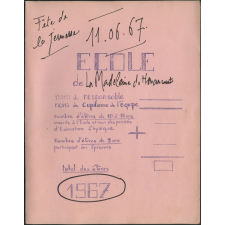 Fête de
la Jeunesse
11.06.67
ECOLE
de La Madeleine d'
NOM du responsable
NOM du Capitaine de l'équipe
Nombre d'élèves de 10 à 15 ans
inscrits à l'école et non dispensés
d'Education Physique
Nombre d'élèves de 
participant aux épreuves
total des
1967